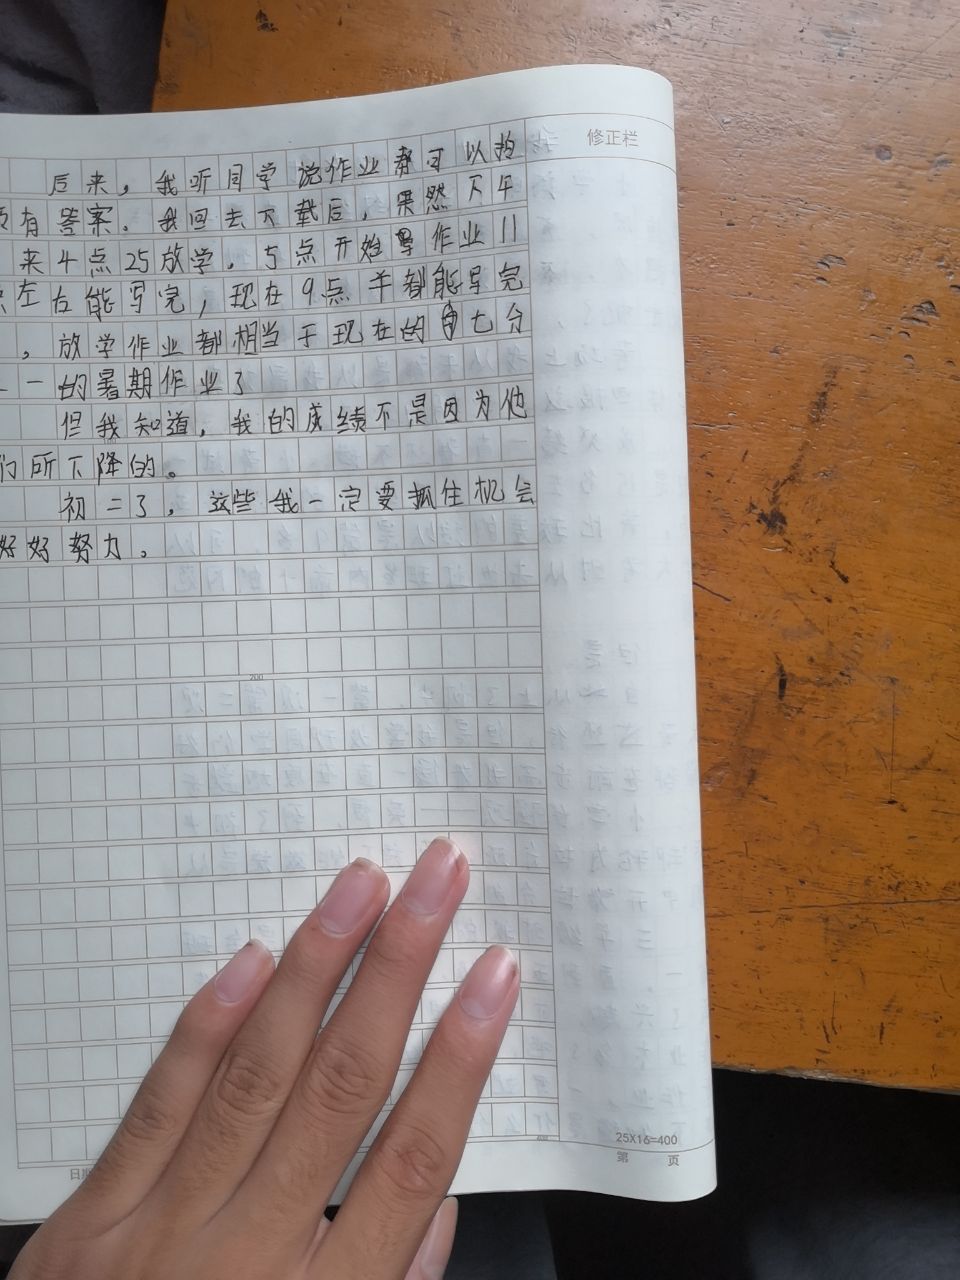 修正栏
后来，我听同学说作业都可以拍
有答案。我回去下载后，果然下午
来4点25放学，5点开始写作业11
左右能写完，现在9点半都能写完
，放学作业都相当于现在的 七分
一的暑期作业了
但我知道，我的成绩不是因为他
们所下降的。
初二了，这些我一定要抓住机会
好好努力。
200
25X16=400
第 页